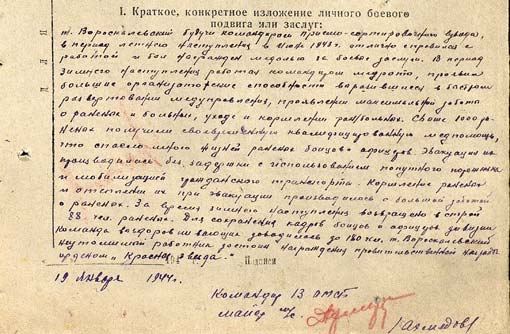 I. Краткое, конкретное изложение личного боевого
подвига или заслуг:
т. Вороскалевский будучи командиром приемо-сортировочного взвода,
в период летнего наступления в 1943г. отлично справился с
работой и был награжден медалью за боевые заслуги. В период
зимнего наступления работая командиром медроты, проявил
большие организаторские способности в быстром
развертывании медучреждения, проявлении максимальной заботы
о раненом и больном, уходе и кормлении ранбольных. Свыше 1000 ра-
неных получили своевременную квалифицированную медпомощь,
что спасло много жизней раненых бойцов и офицеров. Эвакуация их
производилась без задержки с использованием попутного порожняка
и мобилизацией гражданского транспорта. Кормление раненых
и отепление их при эвакуации производилось с большой заботой
о раненом. За время зимнего наступления возвращено в строй
88 чел. раненых. Для сохранения кадров бойцов и офицеров дивизии
команда выздоравливающих доводилась до 180 чел. т. Вороскалевский
неутомимый работник достоин награждения правительственной наградой
орденом "Красная звезда".
194 Подписи
19 Января 1944г.
Командир 13 ОМСБ
майор м/с
/Ахмедов/